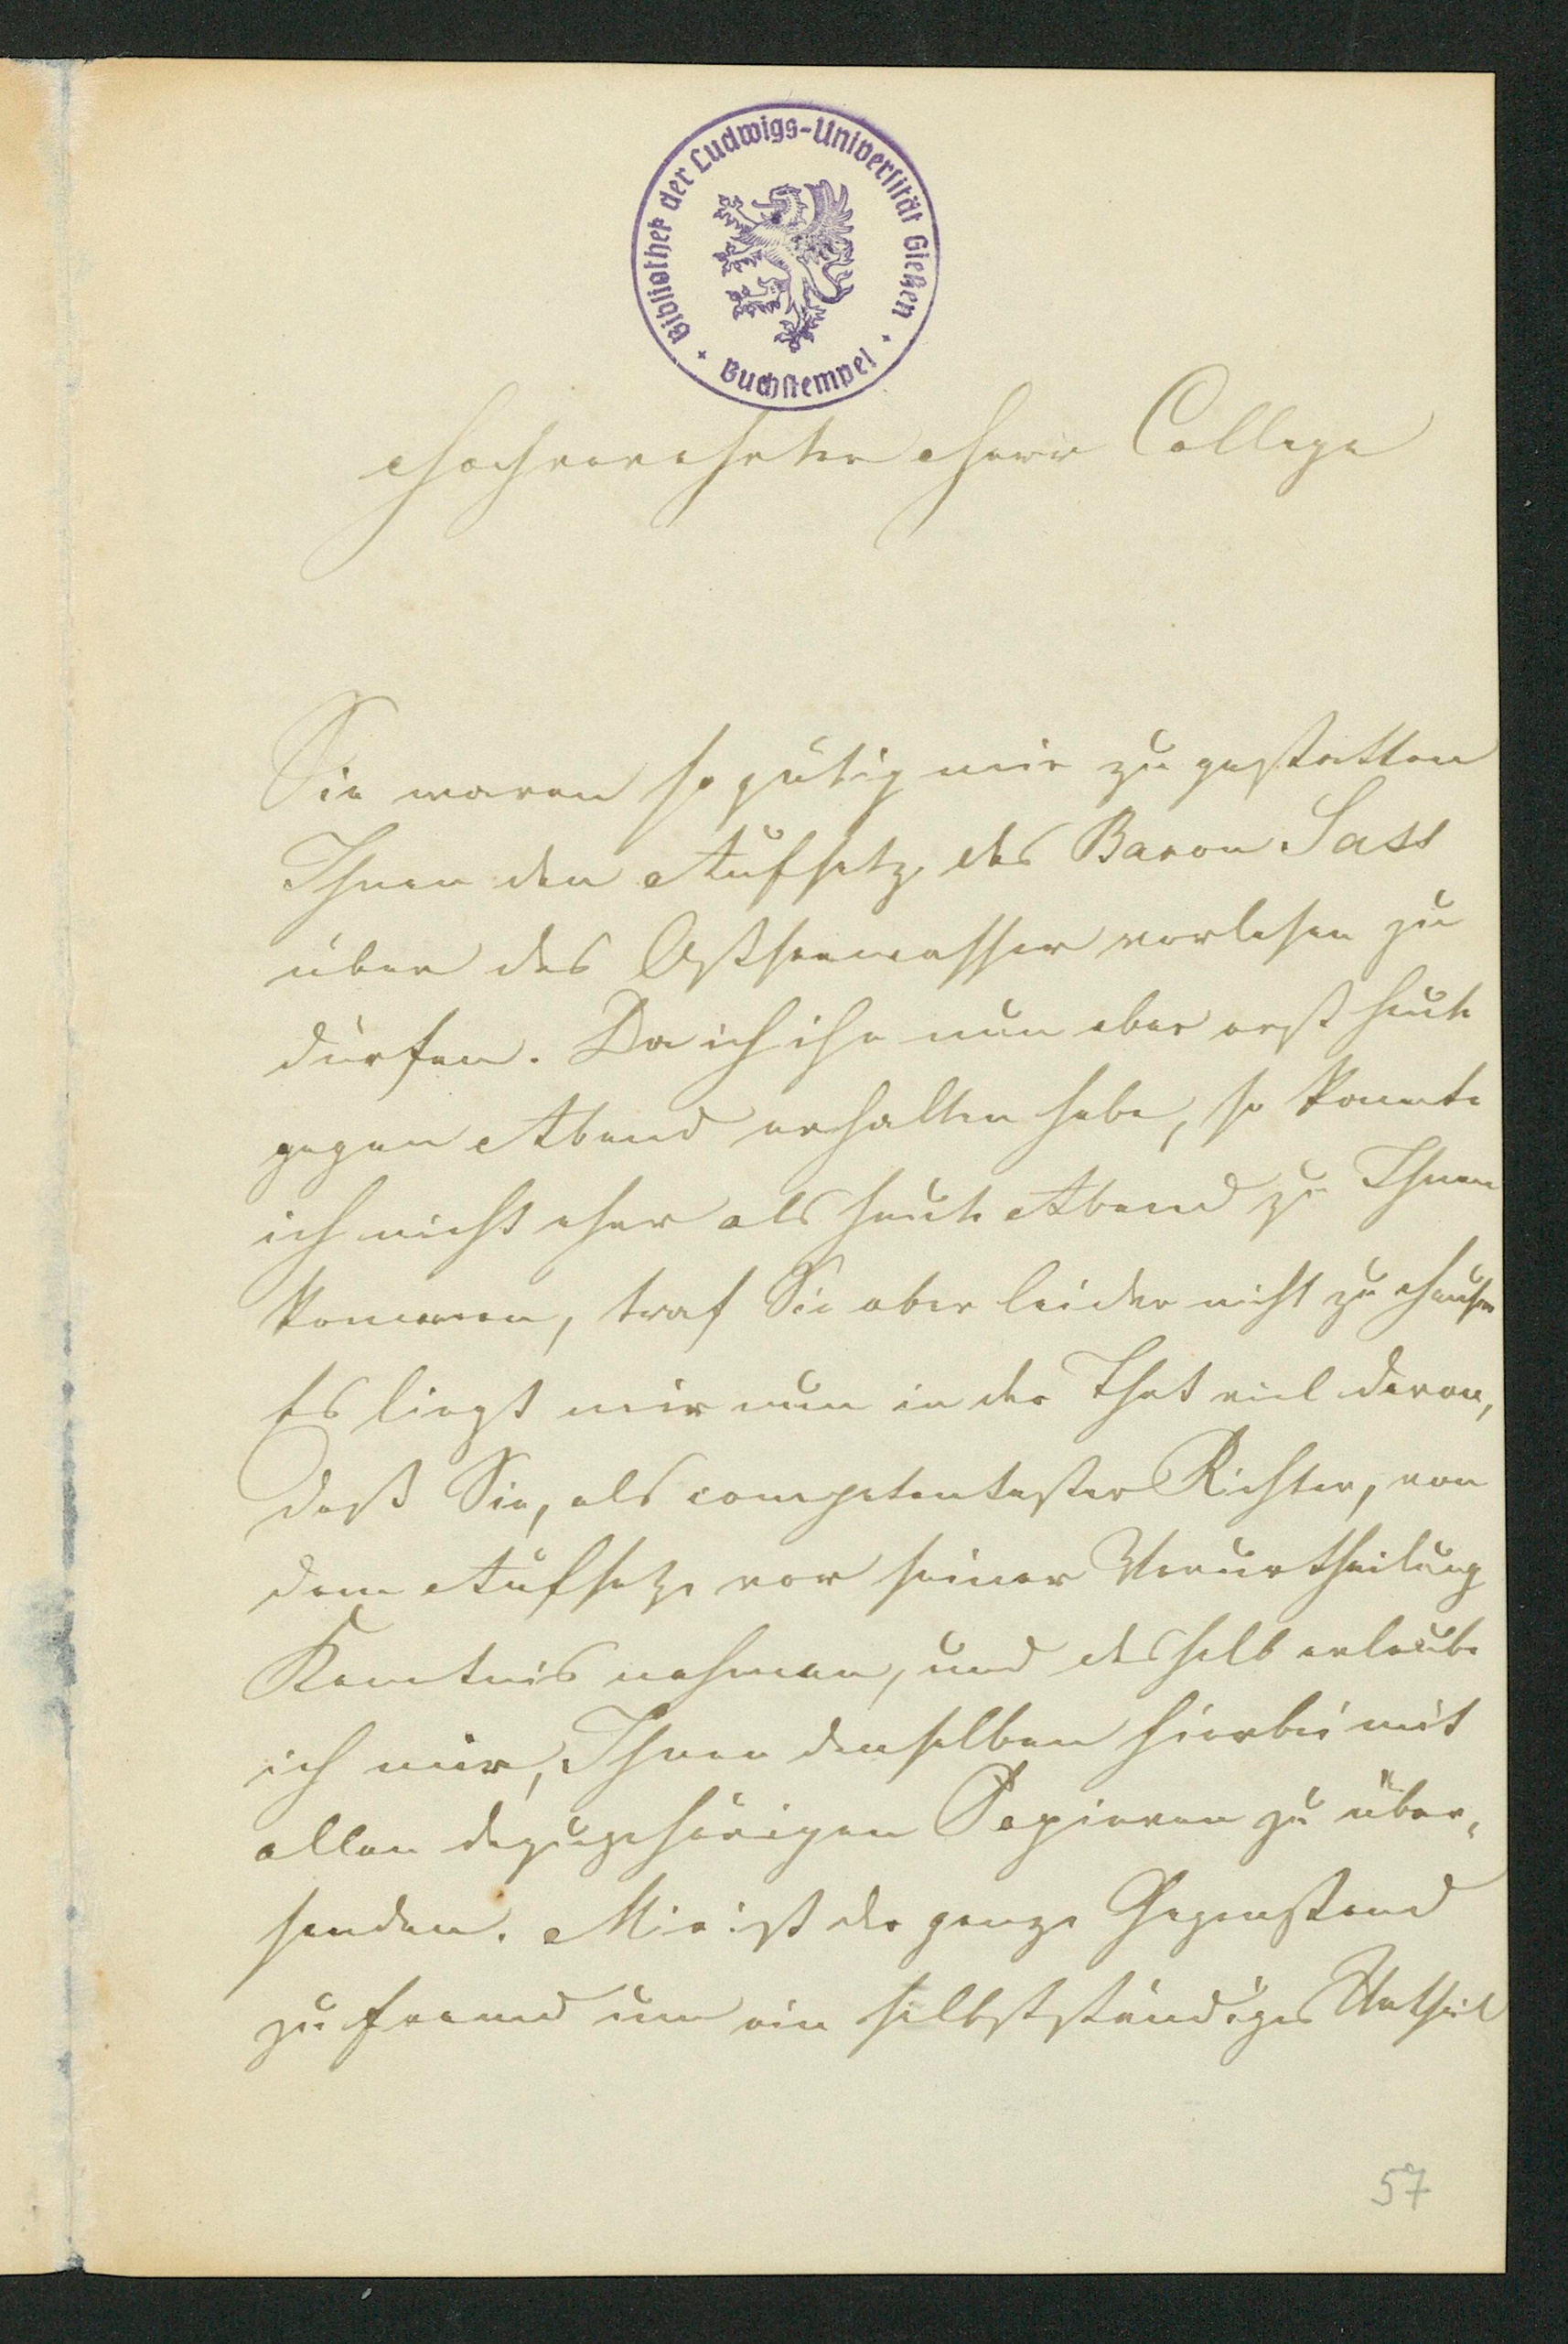 Bibliothek der Ludwigs-Universität Gießen
Buchstempel
Hochverehrter Herr College
Sie waren so gütig mir zu gestatten
Ihnen den Aufsatz des Baron Sass
über das Ostseewasser vorlesen zu
dürfen. Da ich ihn nun aber erst heute
gegen Abend erhalten habe, so konnte
ich nicht eher als heute Abend zu Ihnen
kommen, traf Sie aber leider nicht zu Hause
Es liegt mir nun in der That viel daran,
daß Sie, als competentester Richter, von
dem Aufsatze vor seiner Verurtheilung
Kenntnis nehmen, und deshalb erlaube
ich mir, Ihnen denselben hierbei mit
allen dazugehörigen Papieren zu über-
senden. Mir ist der ganze Gegenstand
zu fremd um ein selbstständiges Urtheil
57